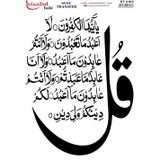 istanbul
hobi
SUYLE
TRANSFER
ST 2105
قل
يَا أَيُّهَا الْكَافِرُونَ لَا
أَعْبُدُ مَا تَعْبُدُونَ وَلَا أَنْتُمْ
عَابِدُونَ مَا أَعْبُدُ وَلَا أَنَا
عَابِدٌ مَا عَبَدْتُمْ وَلَا أَنْتُمْ
عَابِدُونَ مَا أَعْبُدُ لَكُمْ
دِينُكُمْ وَلِيَ دِينِ